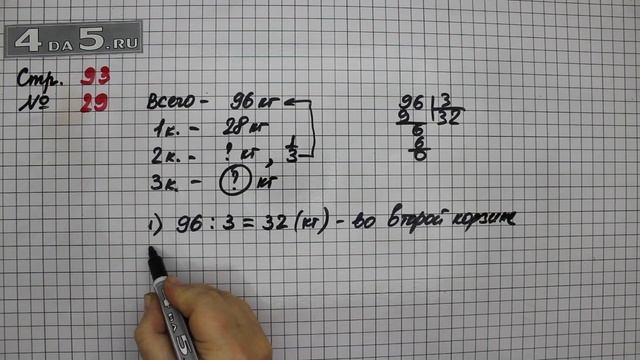 4 DA 5.RU
Стр. 93
№ 29
Всего - 96 кг
1к. - 28 кг
2к. - ? кг, 1/3
3к. - ? кг
96 3
9 32
6
6
0
1) 96 : 3 = 32 (кг) - во второй корзине
4 DA 5.